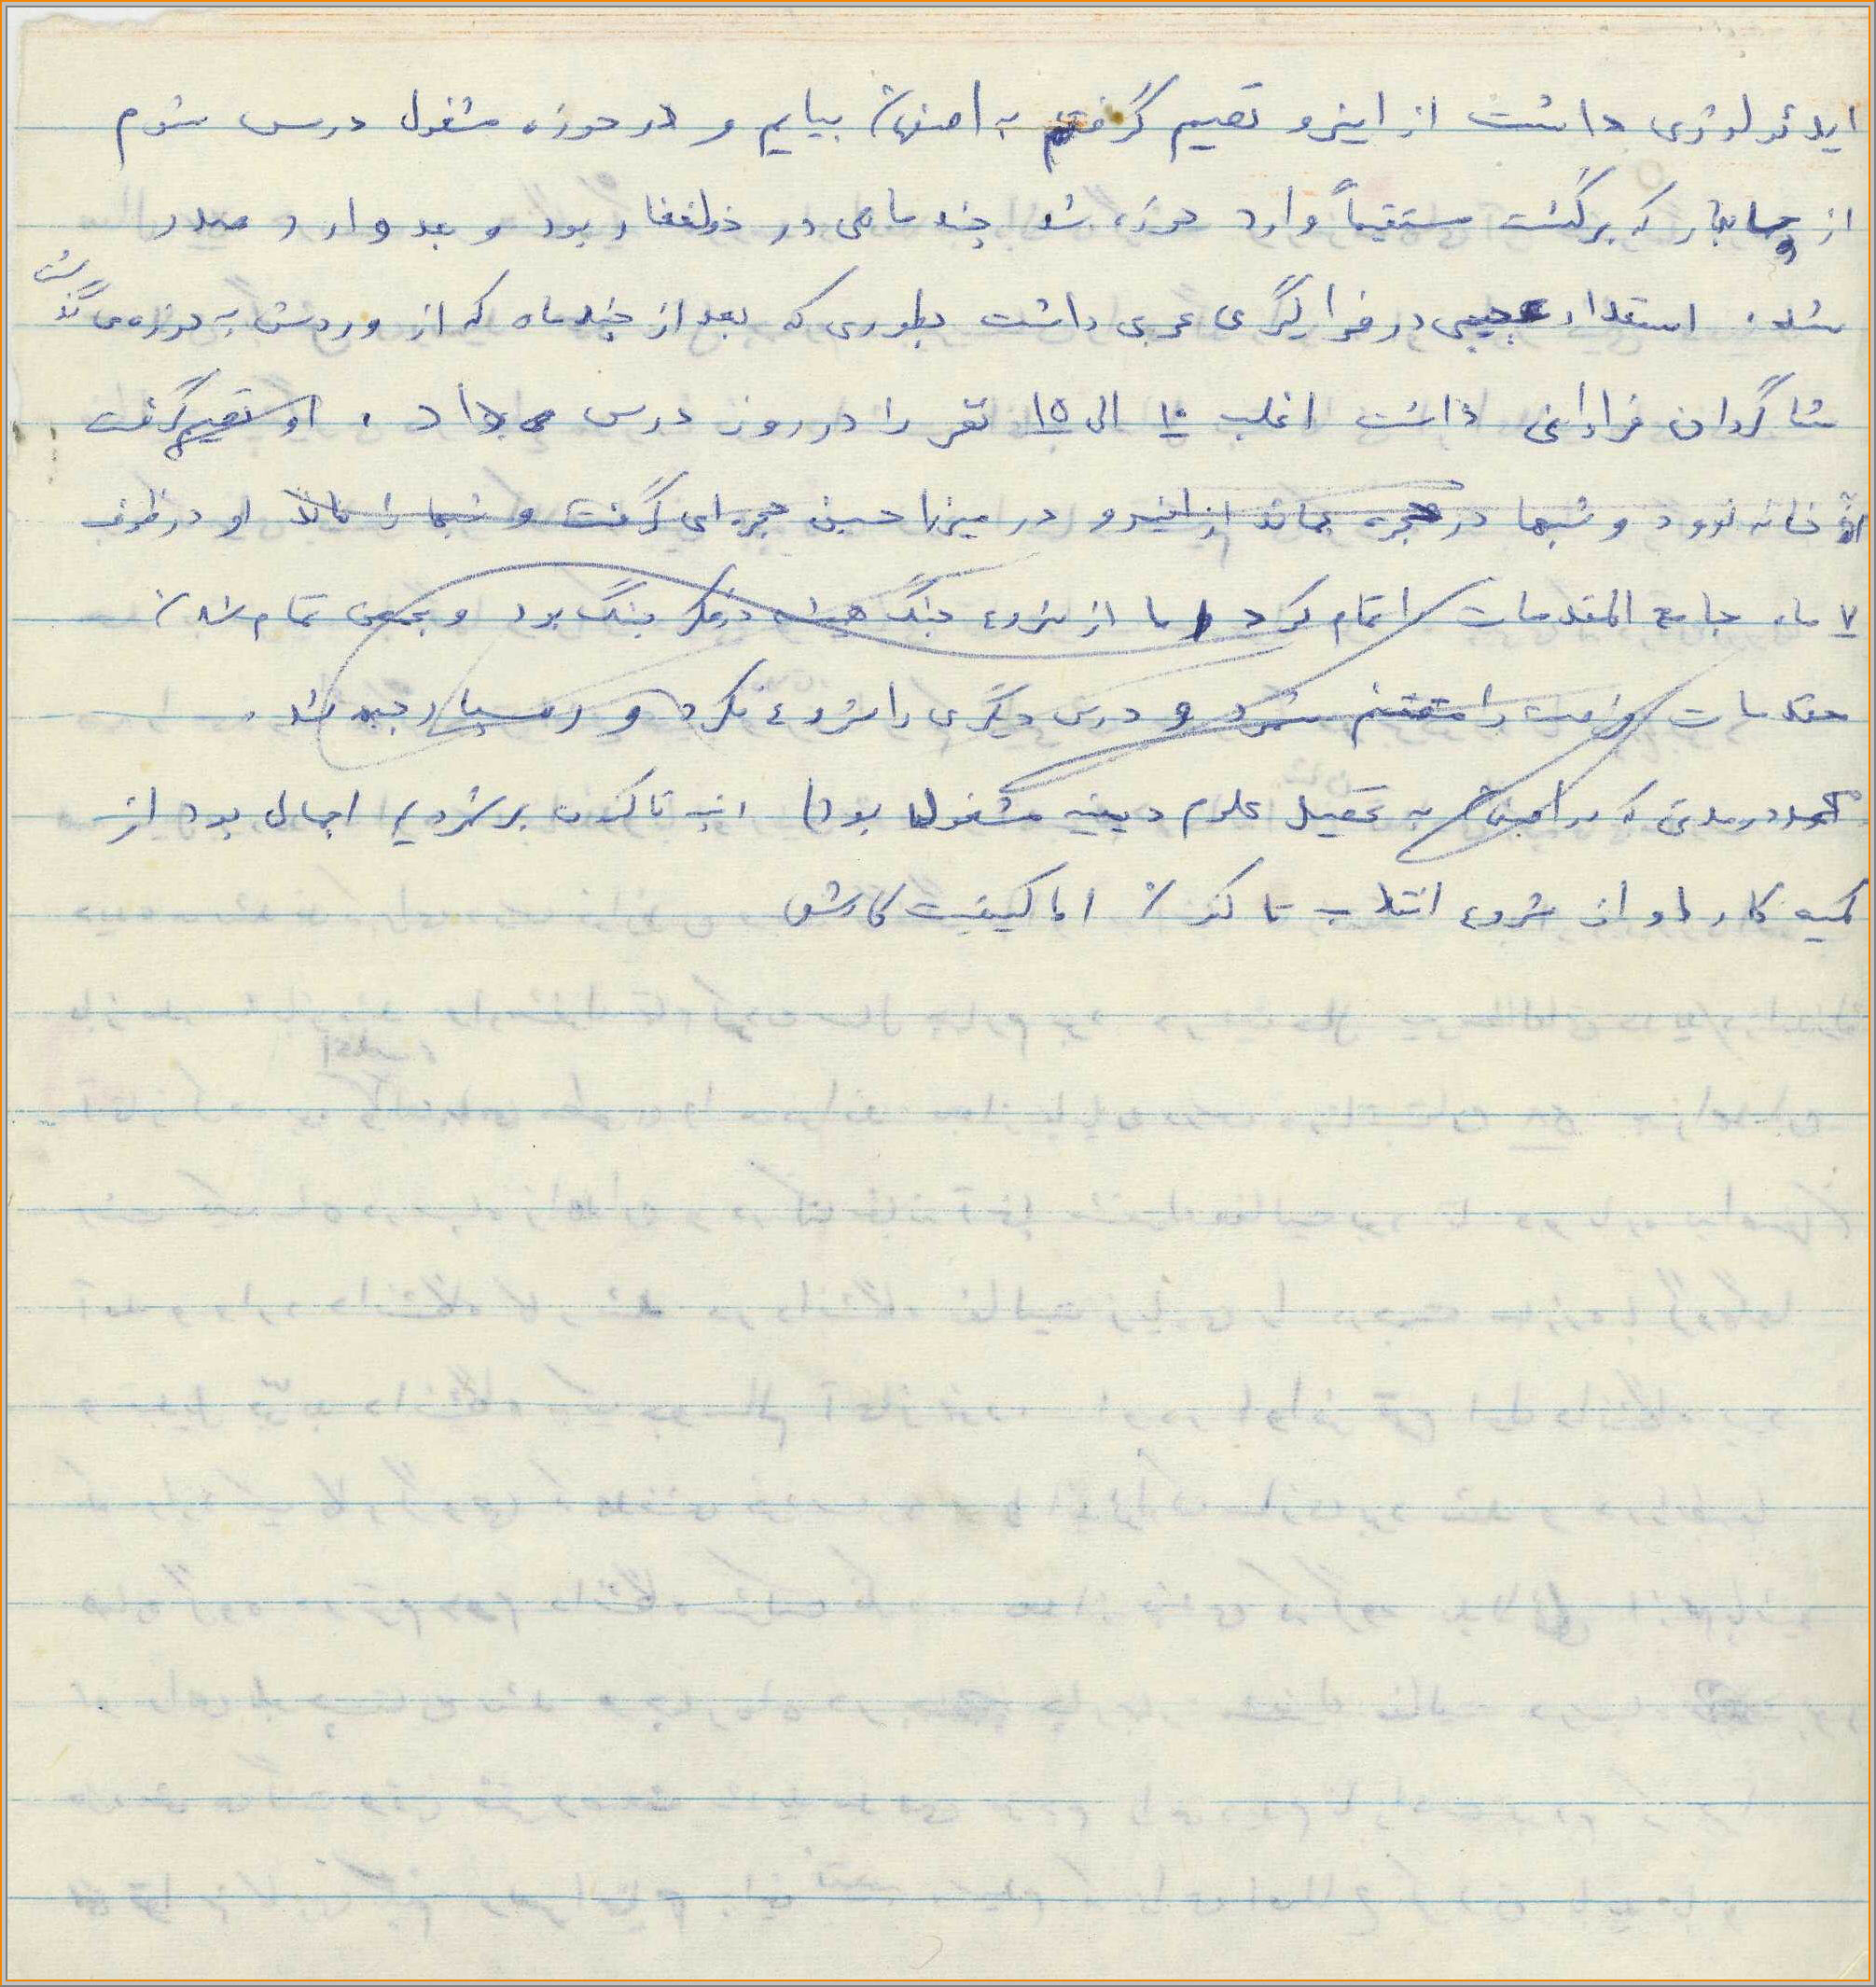 ایدئولوژی داشت از اینرو تصمیم گرفتم به اصفهان بیایم و در حوزه مشغول درس شوم
از چابهار که برگشت مستقیماً وارد حوزه شد چند ماهی در ذوالفقار بود و بعد وارد صدر
شد. استعداد عجیبی در فراگیری عربی داشت بطوری که بعد از چند ماه که از ورودش به حوزه می گذشت
شاگردان فراوانی داشت اغلب ۱۰ الی ۱۵ نفر را در روز درس میداد . او تصمیم گرفت
خانه نرود و شبها در حجره بماند از اینرو در میرزا حسین حجره ای گرفت و شبها را ماند او در ظرف
۷ ماه جامع المقدمات را تمام کرد اما از شروع جنگ همیشه در فکر جنگ بود و بمحض تمام شدن
مقدمات فرصت را مغتنم شمرد و درس دیگری را شروع نکرد و رهسپار جبهه شد .
در مدتی که در اصفهان به تحصیل علوم دینیه مشغول بود آنچه تاکنون برشمردیم اجمال بود از
کمیه کارهای او از شروع انقلاب تا کنون اما کیفیت کارش